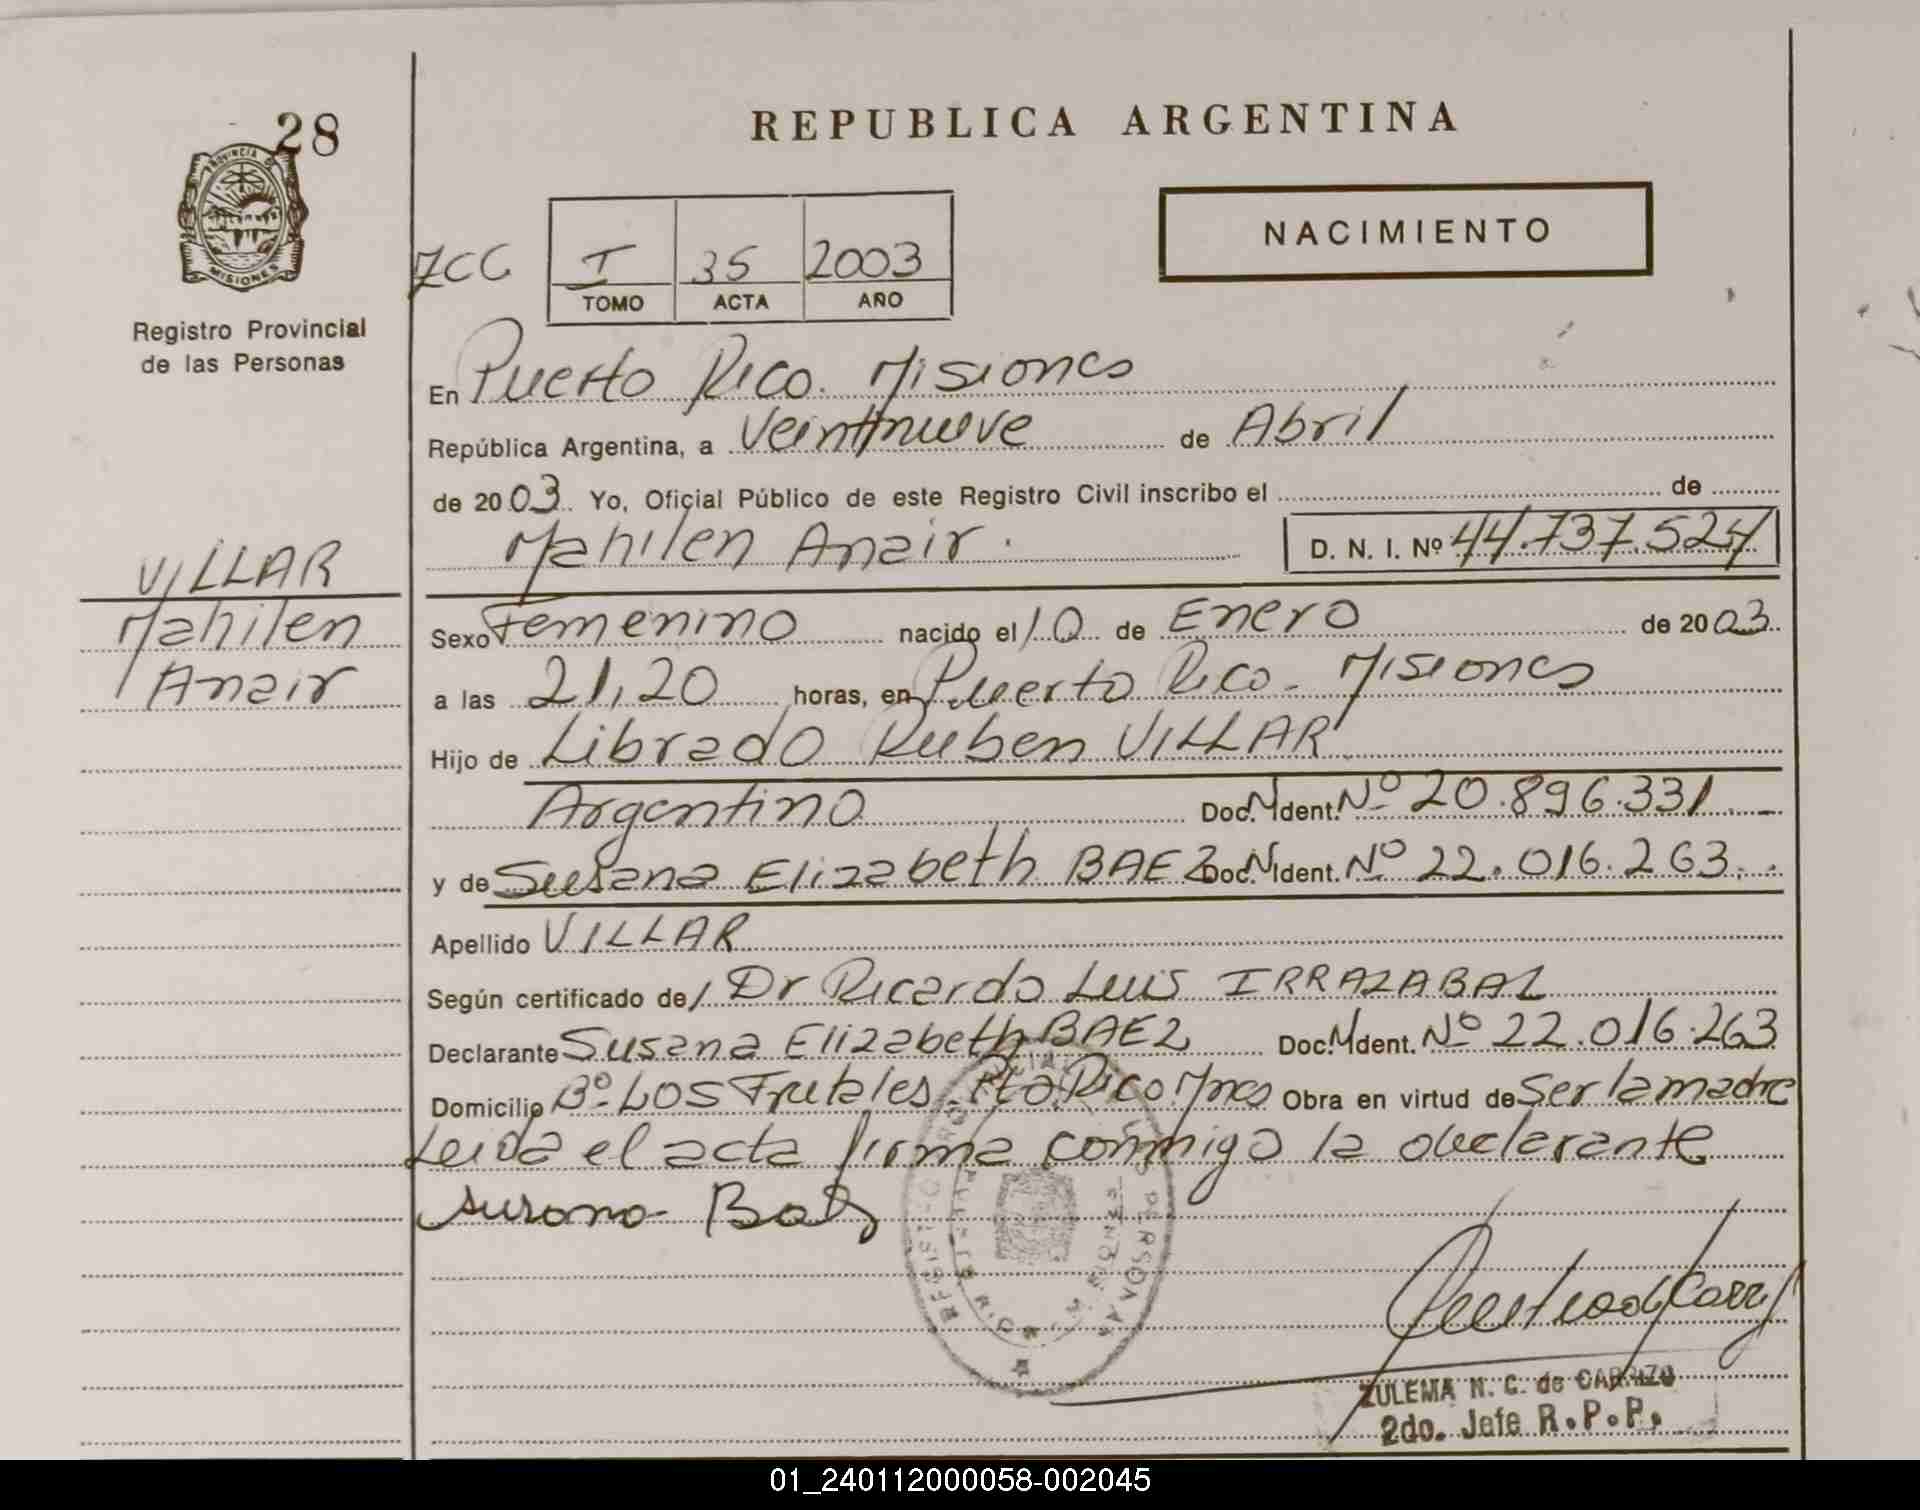 28
REPUBLICA ARGENTINA
PROVINCIA DE
MISIONES
Registro Provincial
de las Personas
I 35 2003
TOMO ACTA AÑO
NACIMIENTO
En Puerto Rico. Misiones
República Argentina, a Veintinueve de Abril
de 2003. Yo, Oficial Público de este Registro Civil inscribo el de
Mahilen Anair. D. N. I. Nº 44.737.524
VILLAR
Mahilen
Anair
Sexo Femenino nacido el 10 de Enero de 2003
a las 21,20 horas, en Puerto Rico. Misiones
Hijo de Librado Ruben VILLAR
Argentino Doc. N Ident. Nº 20.896.331
y de Susana Elizabeth BAEZ Doc. N Ident. Nº 22.016.263
Apellido VILLAR
Según certificado de/ Dr Ricardo Luis IRRAZABAL
Declarante Susana Elizabeth BAEZ Doc. N Ident. Nº 22.016.263
Domicilio Bº. Los Frutales. Pto. Rico Mnes Obra en virtud de Ser la madre
Leida el acta firma conmigo la declarante
Susana Baez
ZULEMA N. C. de CARRIZO
2do. Jefe R.P.P.
01_240112000058-002045